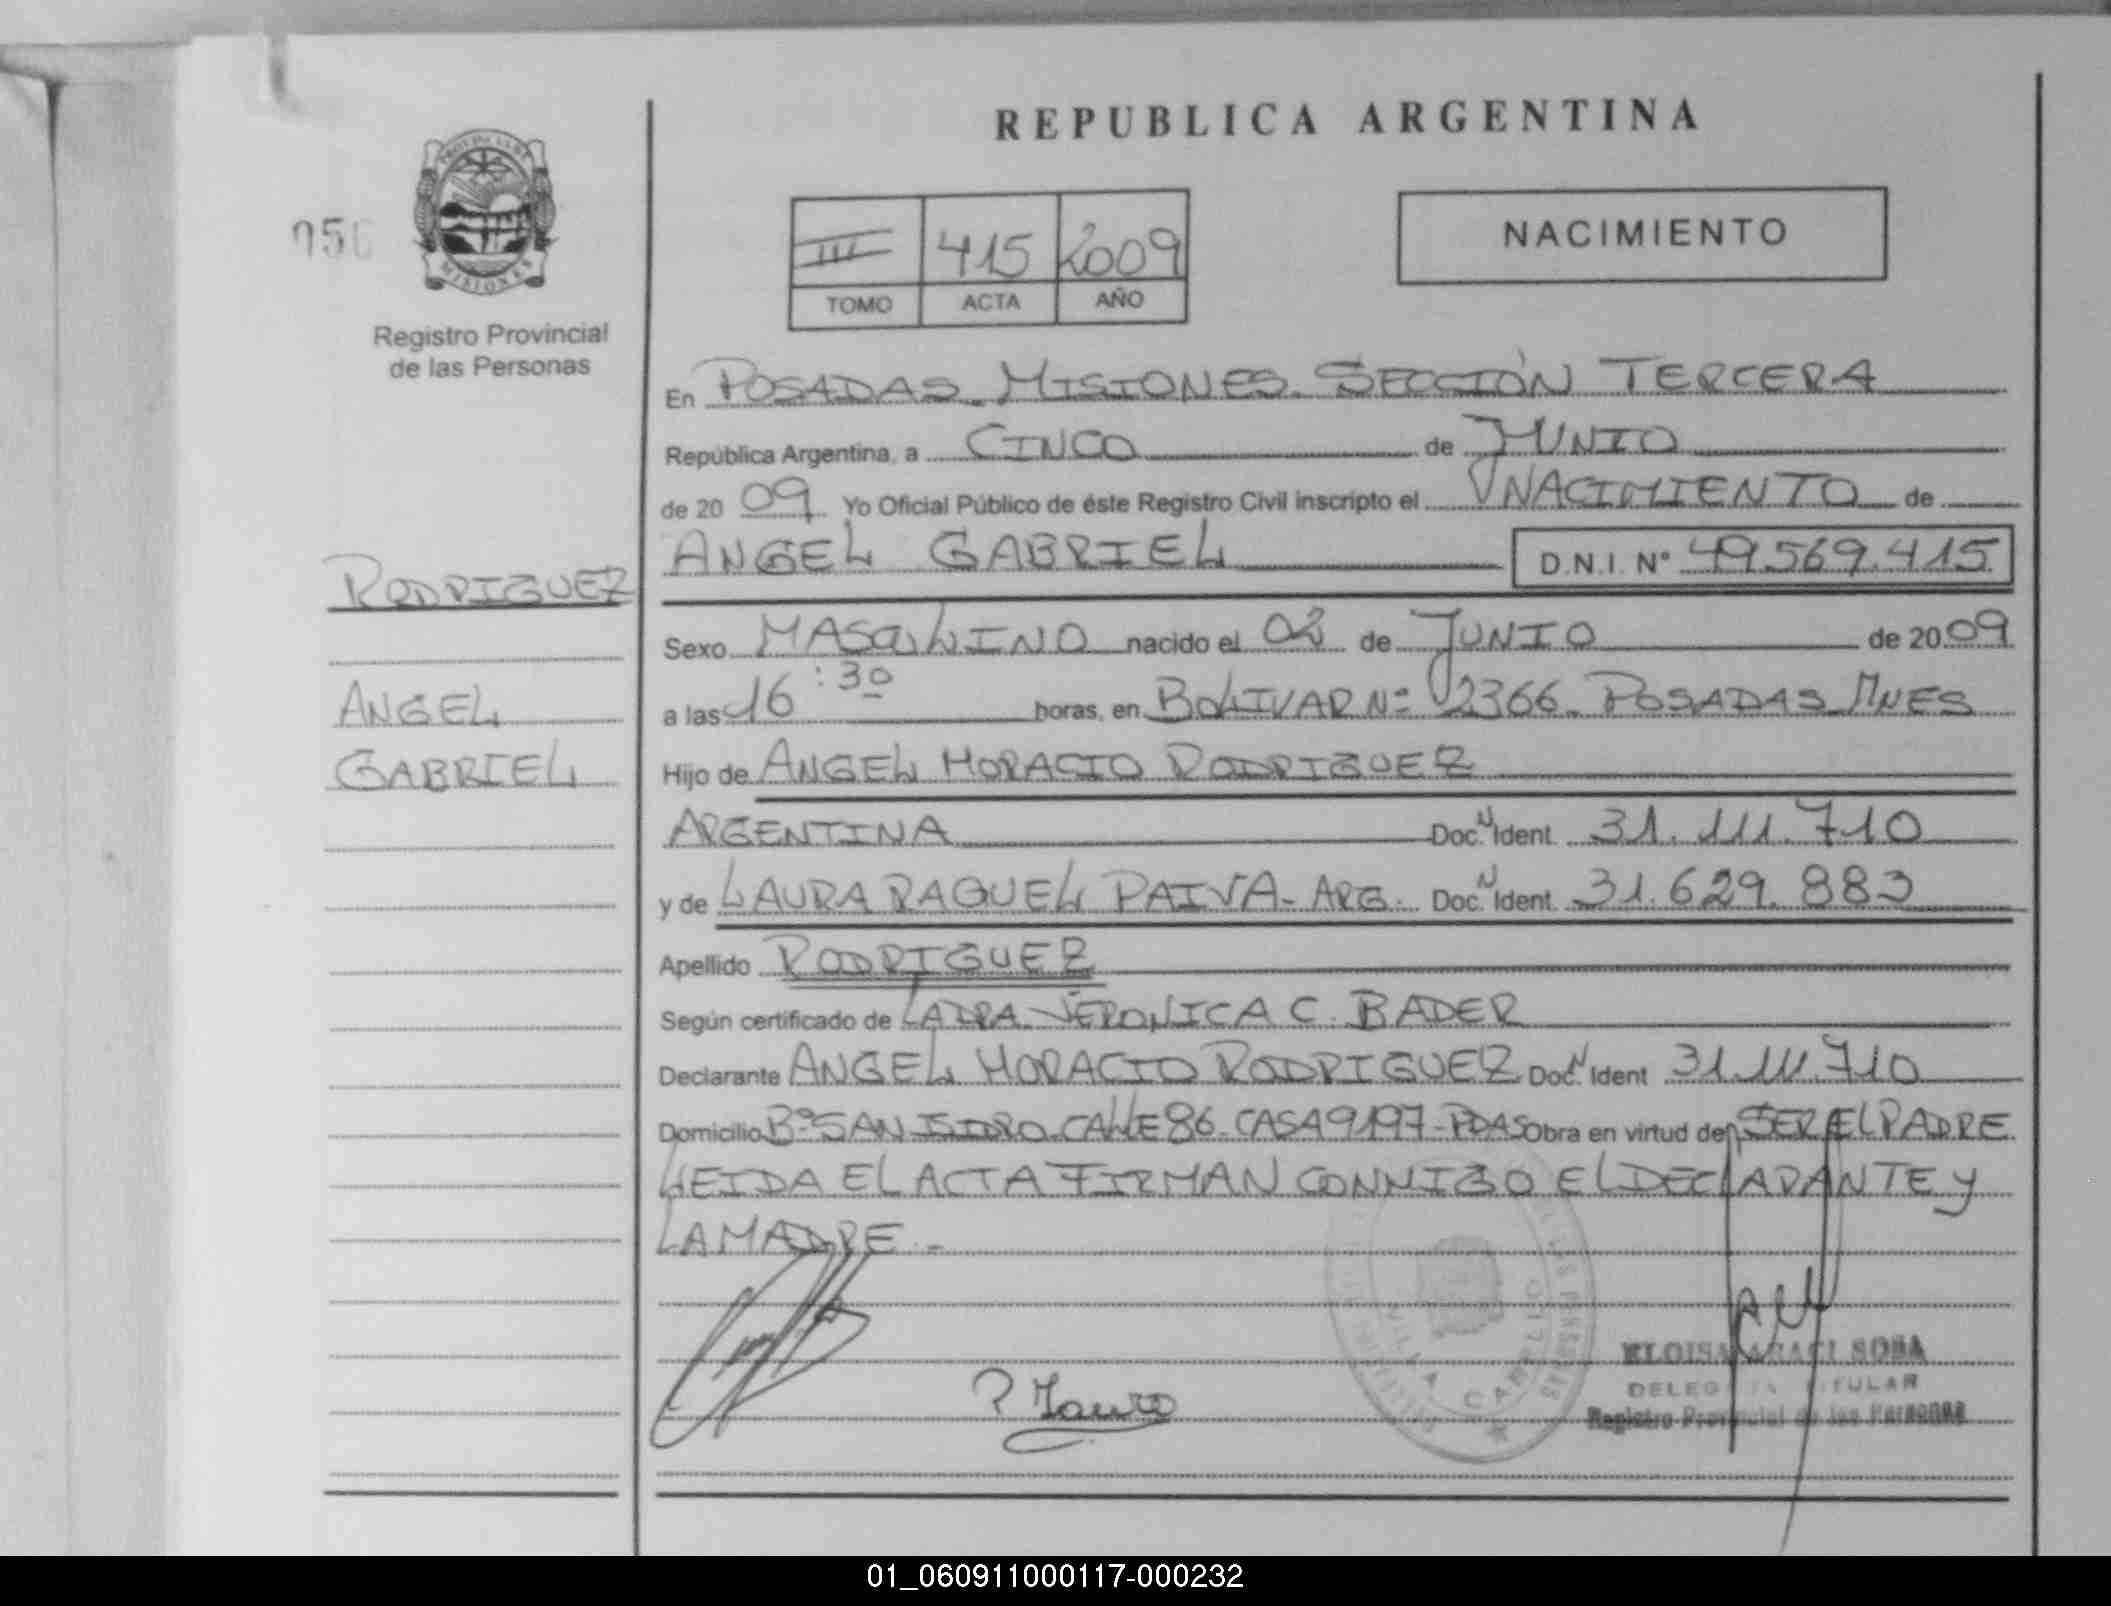 REPUBLICA ARGENTINA
PROVINCIA DE
MISIONES
Registro Provincial
de las Personas
III 415 2009
TOMO ACTA AÑO
NACIMIENTO
En POSADAS. MISIONES. SECCIÓN TERCERA
República Argentina, a CINCO de JUNIO
de 20 09 Yo Oficial Público de éste Registro Civil inscripto el NACIMIENTO de
ANGEL GABRIEL D.N.I. Nº 49.569.415
RODRIGUEZ
ANGEL
GABRIEL
Sexo MASCULINO nacido el 02 de JUNIO de 20 09
a las 16:30 horas, en BOLIVAR Nº 2366. POSADAS MNES
Hijo de ANGEL HORACIO RODRIGUEZ
ARGENTINA Doc. N Ident. 31.111.710
y de LAURA RAQUEL PAIVA - ARG. Doc. N Ident. 31.629.883
Apellido RODRIGUEZ
Según certificado de LA DRA. VERONICA C. BADER
Declarante ANGEL HORACIO RODRIGUEZ Doc. N Ident 31.111.710
Domicilio Bº SAN ISIDRO. CALLE 86. CASA 9197 - PDAS Obra en virtud de SER EL PADRE
LEIDA EL ACTA FIRMAN CONMIGO EL DECLARANTE y
LA MADRE. -
VILLA CABELLO
ELOISA ARACI SOSA
DELEGADA TITULAR
Registro Provincial de las Personas
01_060911000117-000232